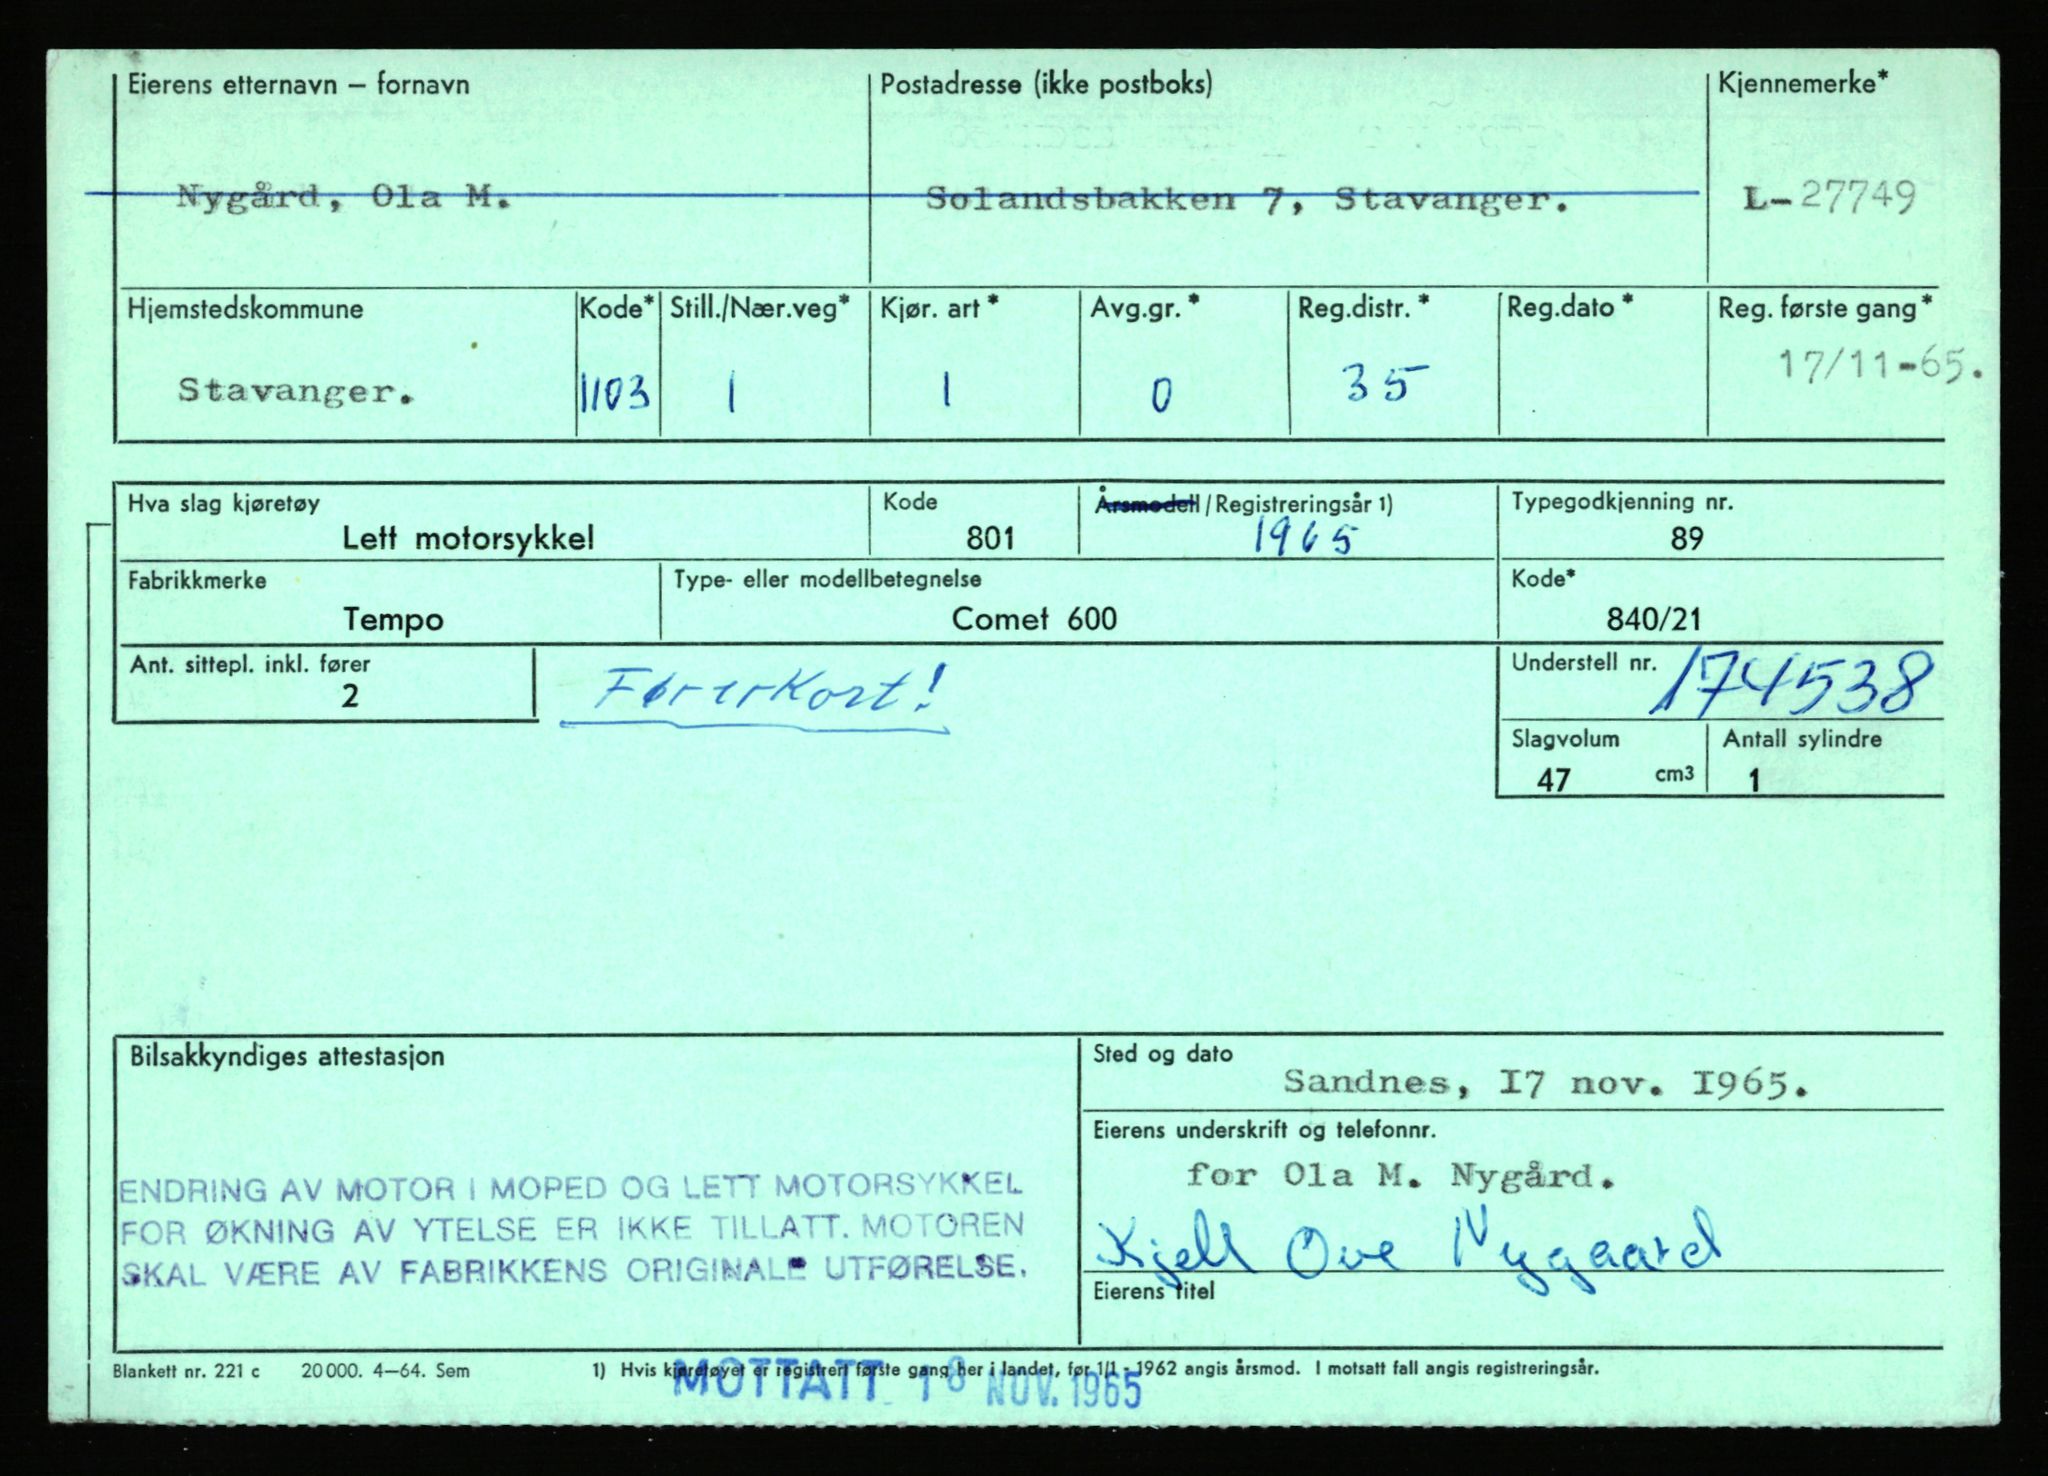 Eierens etternavn – fornavn Postadresse (ikke postboks) Kjennemerke*
Nygård, Ola M. Solandsbakken 7, Stavanger. L-27749
Hjemstedskommune Kode* Still./Nær.veg* Kjør. art* Avg.gr.* Reg.distr.* Reg.dato* Reg. første gang*
Stavanger. 1103 1 1 0 35 17/11-65.
Hva slag kjøretøy Kode Årsmodell/Registreringsår 1) Typegodkjenning nr.
Lett motorsykkel 801 1965 89
Fabrikkmerke Type- eller modellbetegnelse Kode*
Tempo Comet 600 840/21
Ant. sittepl. inkl. fører Understell nr.
2 Førerkort! 174538
Slagvolum Antall sylindre
47 cm3 1
Bilsakkyndiges attestasjon Sted og dato
Sandnes, 17 nov. 1965.
Eierens underskrift og telefonnr.
for Ola M. Nygård.
ENDRING AV MOTOR I MOPED OG LETT MOTORSYKKEL
FOR ØKNING AV YTELSE ER IKKE TILLATT. MOTOREN
Kjell Ove Nygaard
SKAL VÆRE AV FABRIKKENS ORIGINALE UTFØRELSE.
Eierens titel
Blankett nr. 221 c 20000. 4–64. Sem 1) Hvis kjøretøyet er registrert første gang her i landet, før 1/1 - 1962 angis årsmod. I motsatt fall angis registreringsår.
MOTTATT 18 NOV. 1965